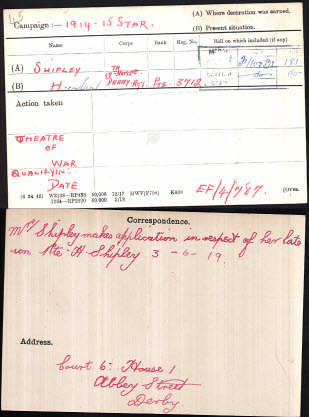 45
Campaign :- 1914-15 STAR.
(A) Where decoration was earned.
(B) Present situation.
Name Corps Rank Reg. No. Roll on which included (if any)
(A) SHIPLEY
(B) H. DERBY. PTE. 3712
Action taken
THEATRE
OF
WAR
QUALIFYING
DATE
EF/4/787.
[OVER.
Correspondence.
Mrs Shipley makes application in respect of her late
son Pte H. Shipley 3 - 6 - 19.
Address.
Court 6: House 1
Abbey Street
Derby.